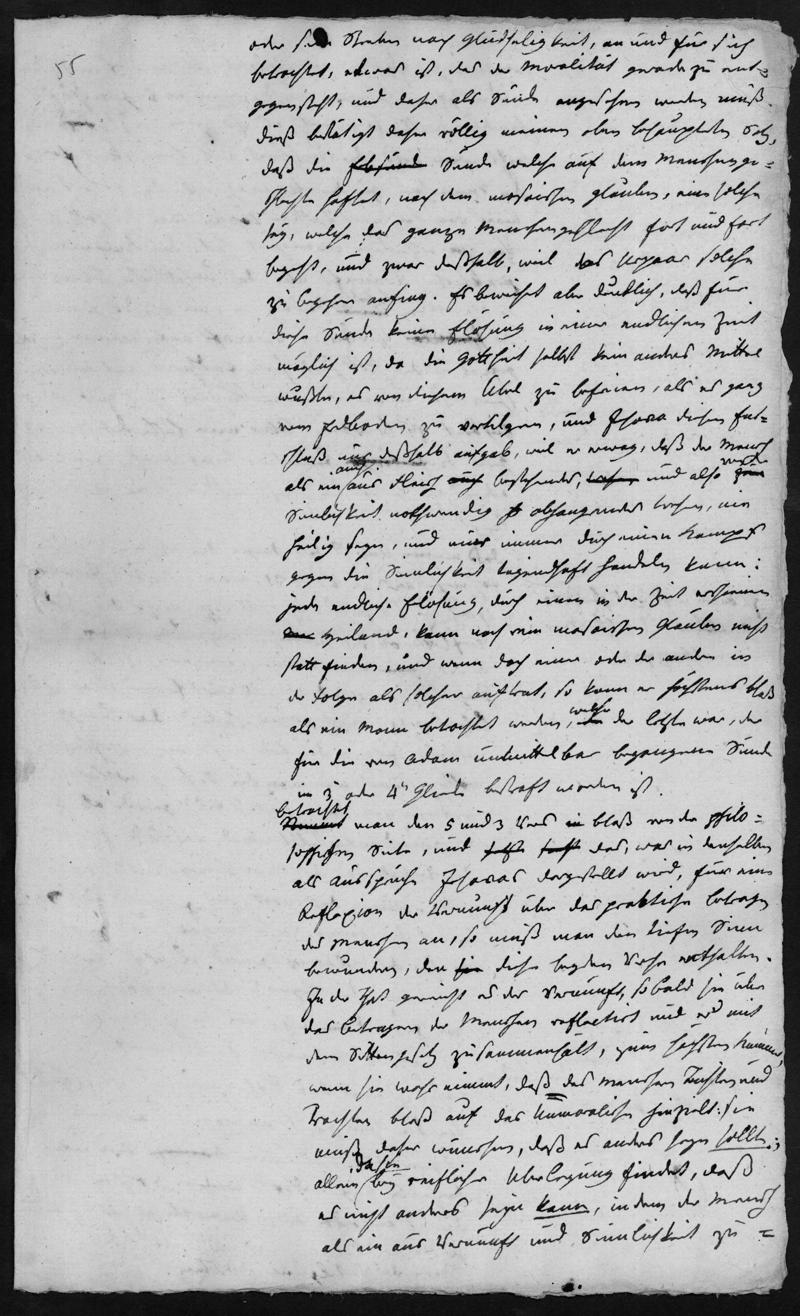 55
oder sein Streben nach Glückseligkeit, an und für sich
betrachtet, etwas ist, das der Moralität gerade zu ent=
gegensteht, und daher als Sünde angesehen werden muß.
dieß bestätigt daher völlig meinen oben behaupteten Satz,
daß die Erbsünde Sünde welche auf dem Menschenge=
schlechte haftet, nach dem mosaischen Glauben, eine solche
sey, welche das ganze Menschengeschlecht fort und fort
begeht, und zwar deßhalb, weil das Urpaar solche
zu begehen anfing. Es beweiset aber deutlich, daß für
diese Sünde keine Erlösung in einer endlichen Zeit
möglich ist, da die Gottheit selbst kein anderes Mittel
wußte, es von diesem Übel zu befreien, als es ganz
vom Erdboden zu vertilgen, und Jhova diesen Ent=
schluß nur deßhalb aufgab, weil er erwog, daß der Mensch
als ein auch aus Fleisch auch bestehendes, und also von der
Sinlichkeit nothwendig abhangendes Wesen, nie
heilig seyn, und nur immer durch einen Kampf
gegen die Sinnlichkeit tugendhaft handeln kann:
jede endliche Erlösung, durch einen in der Zeit erscheinenden
Heiland, kann nach dem mosaischen Glauben nicht
statt finden, und wenn doch einer oder der andere in
der Folge als solcher auftrat, so kann er höchstens bloß
als ein Mann betrachtet werden, welcher der letzte war, der
für die von Adam unmittelbar begangene Sünde
im 3 oder 4 Gliede bestraft worden ist.
betrachtet
Nimmt man den 5 und 3 Vers in bloß von der philo=
sophischen Seite, und das, was in denselben
als Ausspruch Jhovas dargestellt wird, für eine
Reflexion der Vernunft über das praktische Betragen
des Menschen an, so muß man den tiefen Sinn
bewundern, den diese beyden Verse enthalten.
In der That gereicht es der Vernunft, sobald sie über
das Betragen der Menschen reflectirt und es mit
dem Sittengesetz zusammenhält, zum höchsten Kummer,
wenn sie wahr nimmt, daß des Menschen Dichten und
Trachten bloß auf das Unmoralische hinzielt: sie
muß daher wünschen, daß es anders seyn sollte;
allein, da sie bey reiflicher Überlegung findet, daß
es nicht anders seyn kann, indem der Mensch
als ein aus Vernunft und Sinnlichkeit zu=